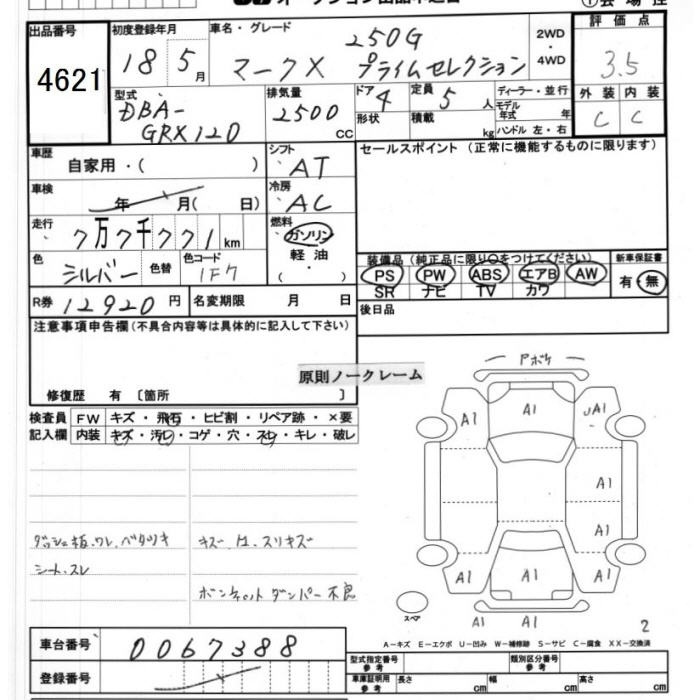 出品番号 初度登録年月 車名・グレード 評価点
4621 18 5月 マークX 250G プライムセレクション 2WD・4WD 3.5
型式 排気量 ドア 定員 ディーラー・並行 外装 内装
DBA-GRX120 2500cc 4 5人 モデル年式 年 C C
形状 積載 kg ハンドル 左・右
車歴 シフト セールスポイント (正常に機能するものに限ります)
自家用・( ) AT
車検 冷房
年 月( 日) AC
走行 燃料
7万7千771km ガソリン
色 色替 色コード 軽油
シルバー 1F7 ( ・ )
装備品(純正品に限り○をつけてください) 新車保証書
PS PW ABS エアB AW 有・無
SR ナビ TV カワ
R券 12920円 名変期限 月 日 後日品
注意事項申告欄(不具合内容等は具体的に記入して下さい)
原則ノークレーム
修復歴 有 [箇所 ]
検査員 FW キズ・飛石・ヒビ割・リペア跡・×要
記入欄 内装 キズ・汚レ・コゲ・穴・スレ・キレ・破レ
ダッシュ板、ワレ、ベタツキ キズ 
シート、スレ スリキズ
ボンネットダンパー不良
アボケ
A1 A1 A1
A1
A1
A1 A1 A1
A1 A1
スペア
2
A-キズ E-エクボ U-凹み W-補修跡 S-サビ C-腐食 XX-交換済
車台番号 0067388
登録番号
型式指定番号 参考 類別区分番号 参考
車庫証明用 参考 長さ cm 幅 cm 高さ cm